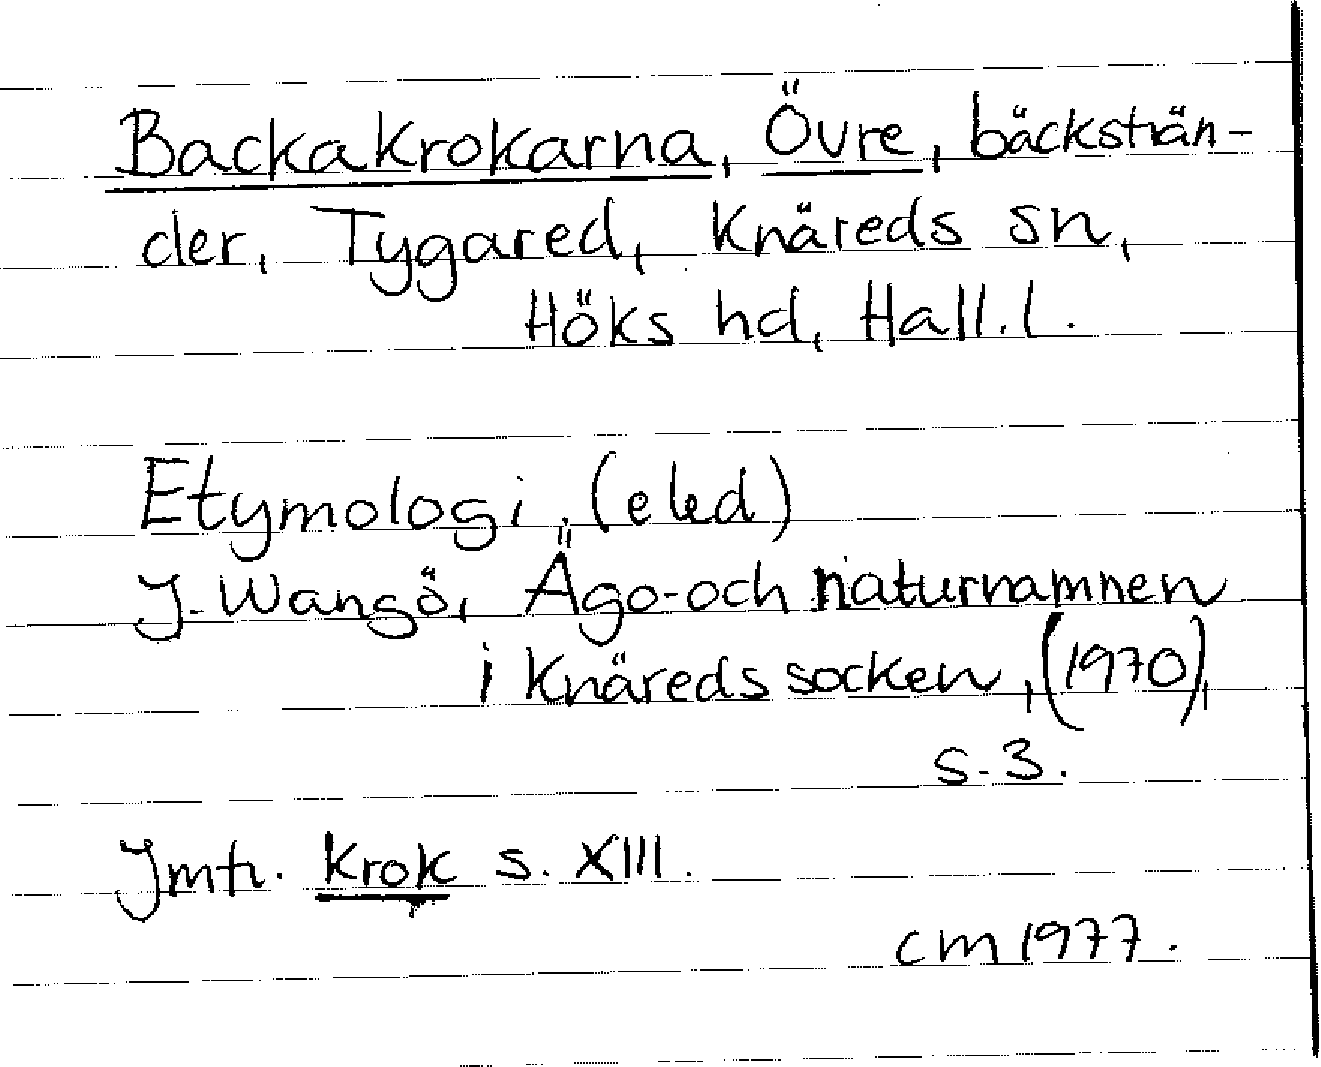 Backakrokarna, Övre, bäcksträn-
der, Tygared, Knäreds sn,
Höks hd, Hall.l.
Etymologi, (eled)
J. Wangö, Ägo- och naturnamnen
i Knäreds socken, (1970),
s. 3.
Jmfr. krok s. XIII.
cm 1977.